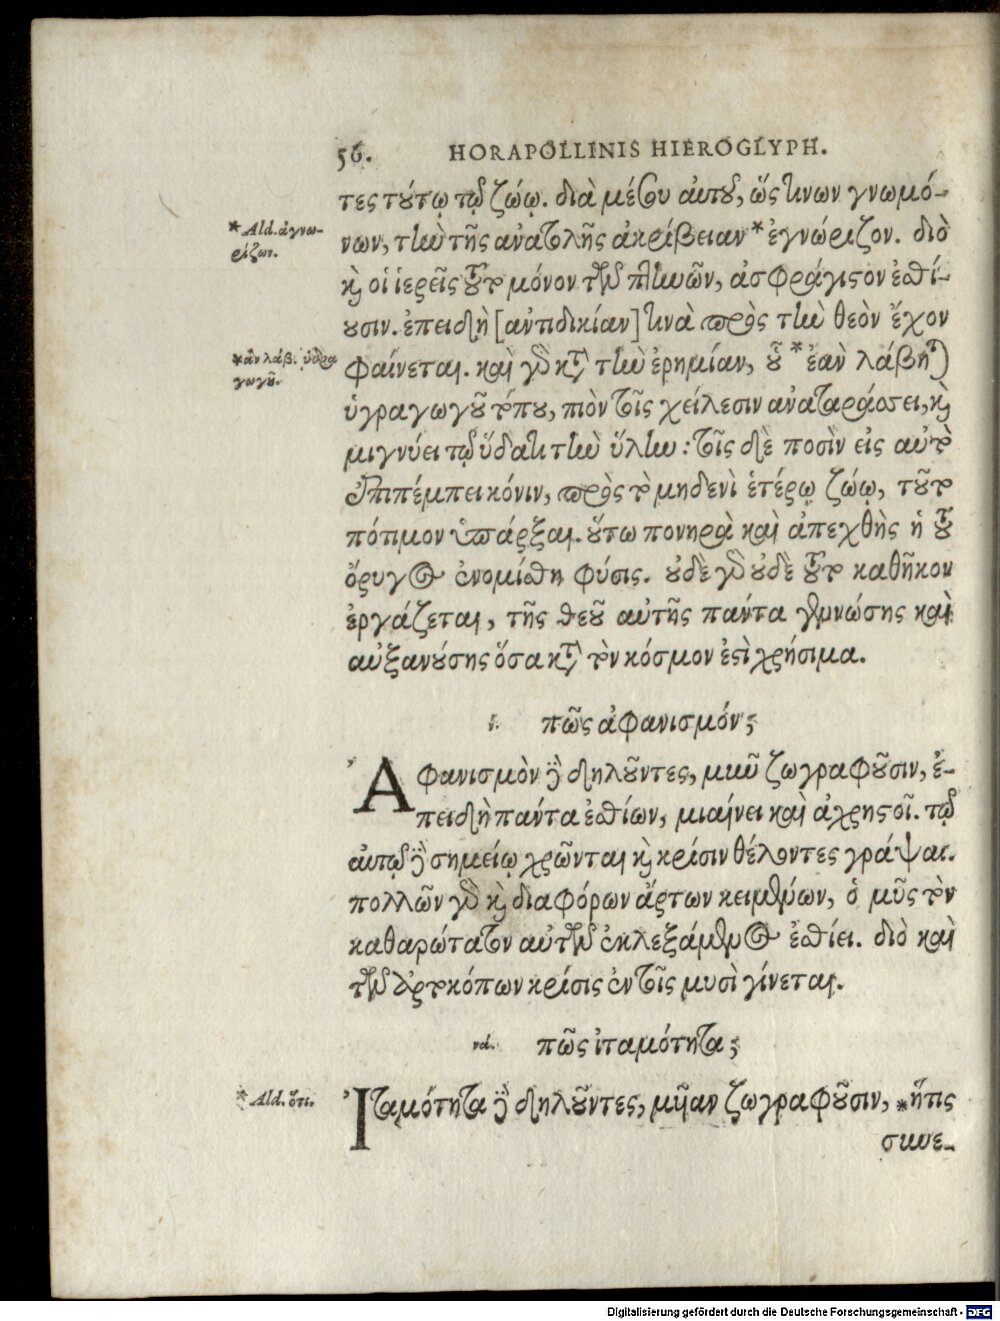 56.
HORAPOLLINIS HIEROGLYPH.
τες τούτῳ τῷ ζώῳ. διὰ μέσου αὐτοῦ, ὥς τινων γνωμό-
νων, τὴν τῆς ἀνατολῆς ἀκρίβειαν * ἐγνώριζον. διὸ
καὶ οἱ ἱερεῖς τοῦτο μόνον τῶν πτηνῶν, ἀσφράγιστον ἐσθί-
ουσιν. ἐπειδὴ [ἀντιδικίαν] τινὰ πρὸς τὴν θεὸν ἔχον
φαίνεται. καὶ γὰρ κατὰ τὴν ἐρημίαν, οὗ * ἐὰν λάβηται
ὑγραγωγοῦ τόπου, πιὸν τοῖς χείλεσιν ἀναταράσσει, καὶ
μιγνύει τῷ ὕδατι τὴν ὕλην: τοῖς δὲ ποσὶν εἰς αὐτὸ
ἐπιπέμπει κόνιν, πρὸς τὸ μηδενὶ ἑτέρῳ ζώῳ, τοῦτο
πότιμον ὑπάρξαι. οὕτω πονηρὰ καὶ ἀπεχθὴς ἡ τοῦ
ὄρυγος ἐνομίσθη φύσις. οὐδὲ γὰρ οὐδὲ τοῦτο καθῆκον
ἐργάζεται, τῆς θεοῦ αὐτῆς πάντα γεννώσης καὶ
αὐξανούσης ὅσα κατὰ τὸν κόσμον ἐστὶ χρήσιμα.
* Ald. ἀγνω-
ρίζων.
* ἂν λάβ. ὑδρα
γωγοῦ.
ν. πῶς ἀφανισμόν;
Ἀφανισμὸν δὲ δηλοῦντες, μῦν ζωγραφοῦσιν, ἐ-
πειδὴ πάντα ἐσθίων, μιαίνει καὶ ἀχρηστοῖ. τῷ
αὐτῷ δὲ σημείῳ χρῶνται καὶ κρίσιν θέλοντες γράψαι.
πολλῶν γὰρ καὶ διαφόρων ἄρτων κειμένων, ὁ μῦς τὸν
καθαρώτατον αὐτῶν ἐκλεξάμενος ἐσθίει. διὸ καὶ
τῶν ἀρτοκόπων κρίσις ἐν τοῖς μυσὶ γίνεται.
να. πῶς ἰταμότητα;
Ἰταμότητα δὲ δηλοῦντες, μυῖαν ζωγραφοῦσιν, * ἥτις
* Ald. ὅτι.
συνε-
Digitalisierung gefördert durch die Deutsche Forschungsgemeinschaft - DFG